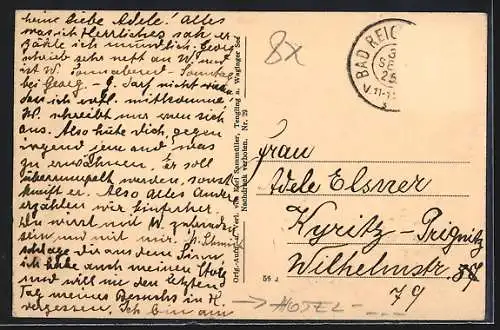 meine liebe Adele! Alles
was ich Herrliches sah er-
zähle ich mündlich. Georg
schrieb sehr nett an W. und
ist W. Sonnabend - Sonntag
bei Georg - G. darf nicht
dan ich evtl. mitkomme,
W. schreibt nur wenn sich
aus. Also hüte dich, gegen
irgend jem. and was
zu erwähnen. Er soll
überrumpelt werden, sonst
kneift er. Also alles Andere
erzählen wir hinterher.
Du wirst mit W. zufrieden
sein und mit mir.
schlage dir aus dem Sinn,
ich habe auch meinen Stolz
und will mir den letzten
Tag meines Besuchs in K.
vergessen. Ich bin am
Orig.-Aufn. u. Verl. von Karl Sammüller, Tengling a. Waginger See
Nachdruck verboten. Nr. 29
8x
BAD REIC
3
SE
25
V. 11-1
Frau
Adele Elsner
Kyritz - Prignitz
Wilhelmstr. 57
79
→ HOTEL -